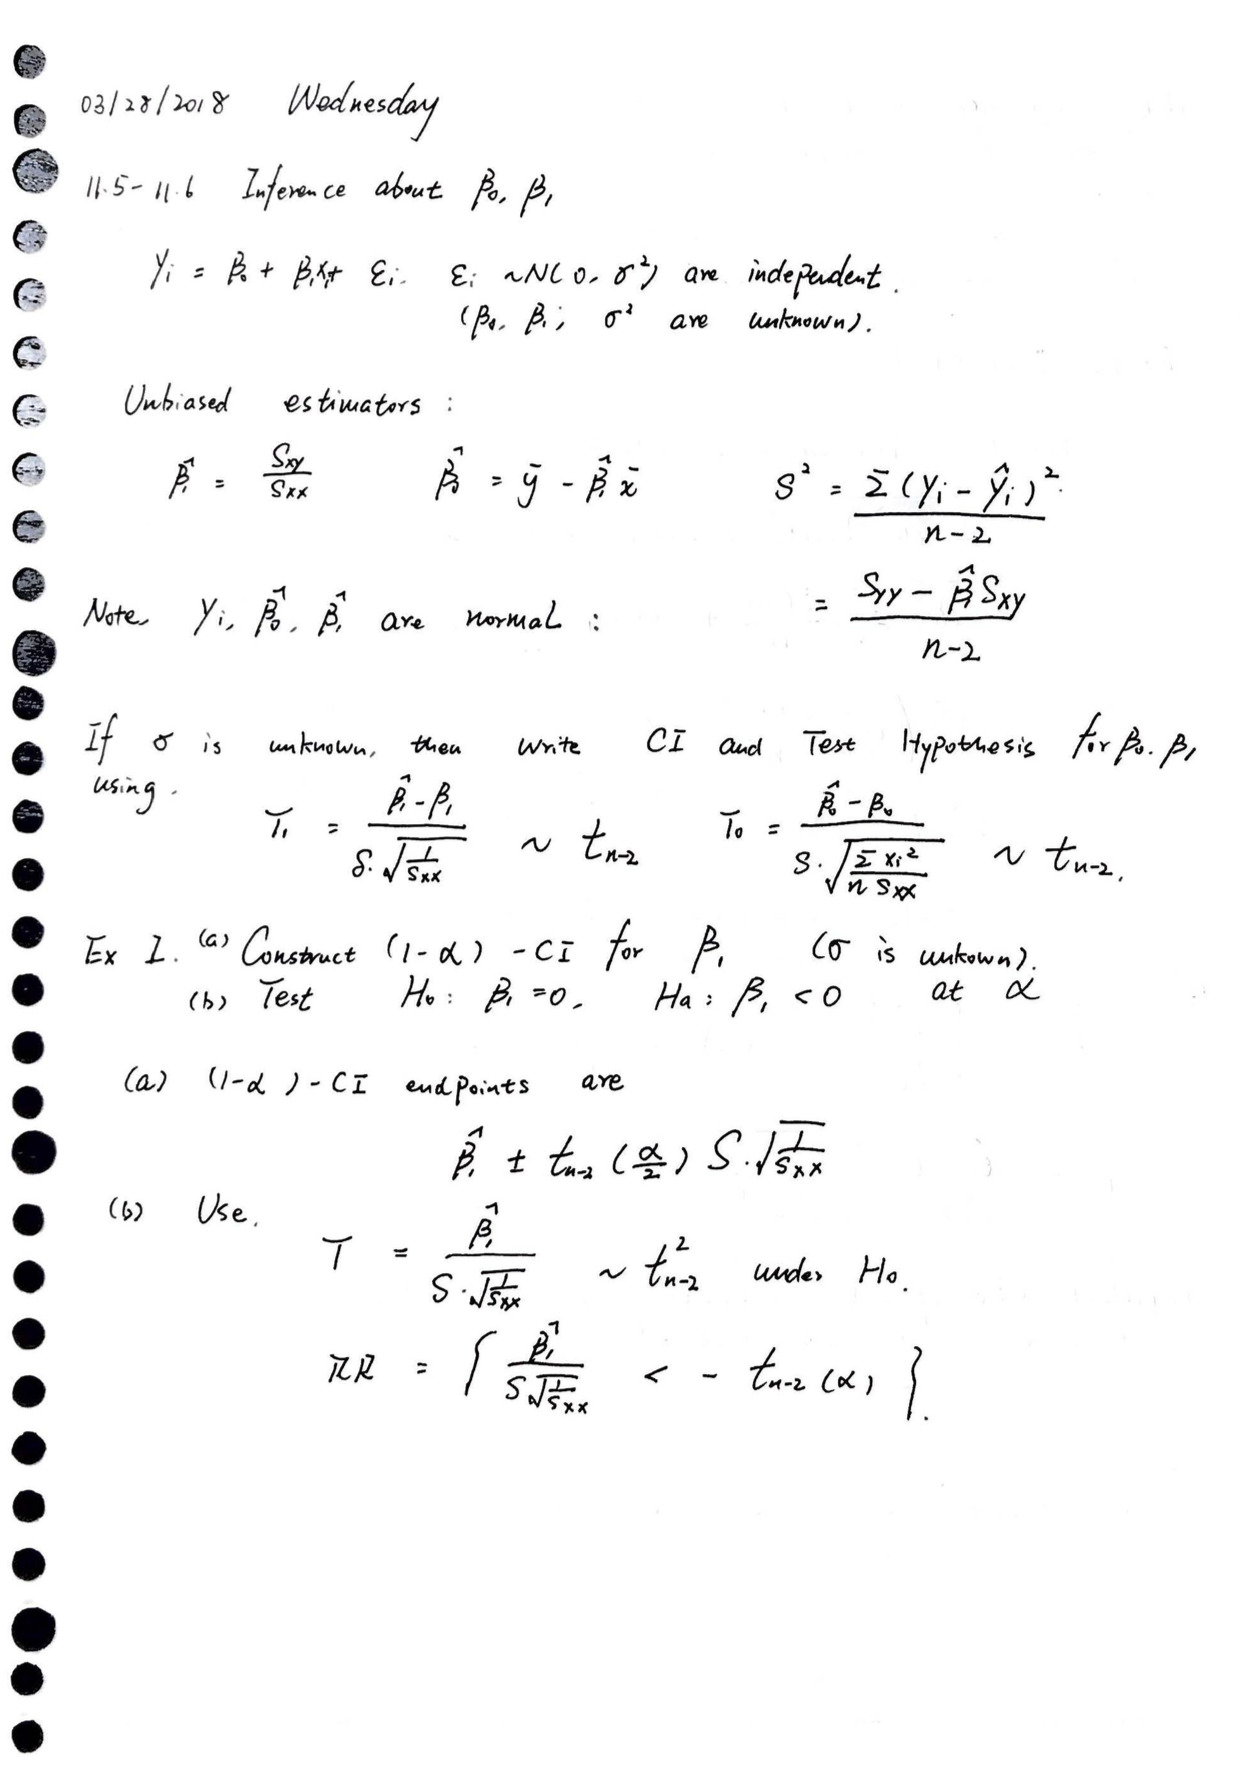 03/28/2018 Wednesday
11.5-11.6 Inference about β₀, β₁
Yi = β₀ + β₁xi + εi. εi ~N(0, σ²) are independent.
(β₀, β₁; σ² are unknown).
Unbiased estimators:
β̂₁ = Sxy/Sxx β̂₀ = ȳ - β̂₁ x̄ S² = Σ(Yi - Ŷi)²/(n-2)
= (SYY - β̂₁ SXY)/(n-2)
Note, Yi, β̂₀, β̂₁ are normal:
If σ is unknown, then write CI and Test Hypothesis for β₀. β₁
using.
T₁ = (β̂₁ - β₁)/(S·√(1/Sxx)) ~ tn-2 T₀ = (β̂₀ - β₀)/(S·√(Σxi²/(n Sxx))) ~ tn-2.
Ex 1. (a) Construct (1-α) -CI for β₁ (σ is unkown).
(b) Test H₀: β₁ = 0, Ha: β₁ < 0 at α
(a) (1-α)-CI endpoints are
β̂₁ ± tn-2 (α/2) S·√(1/Sxx)
(b) Use.
T = β̂₁/(S·√(1/Sxx)) ~ t²n-2 under H₀.
RR = { β̂₁/(S√(1/Sxx)) < - tn-2(α) }.